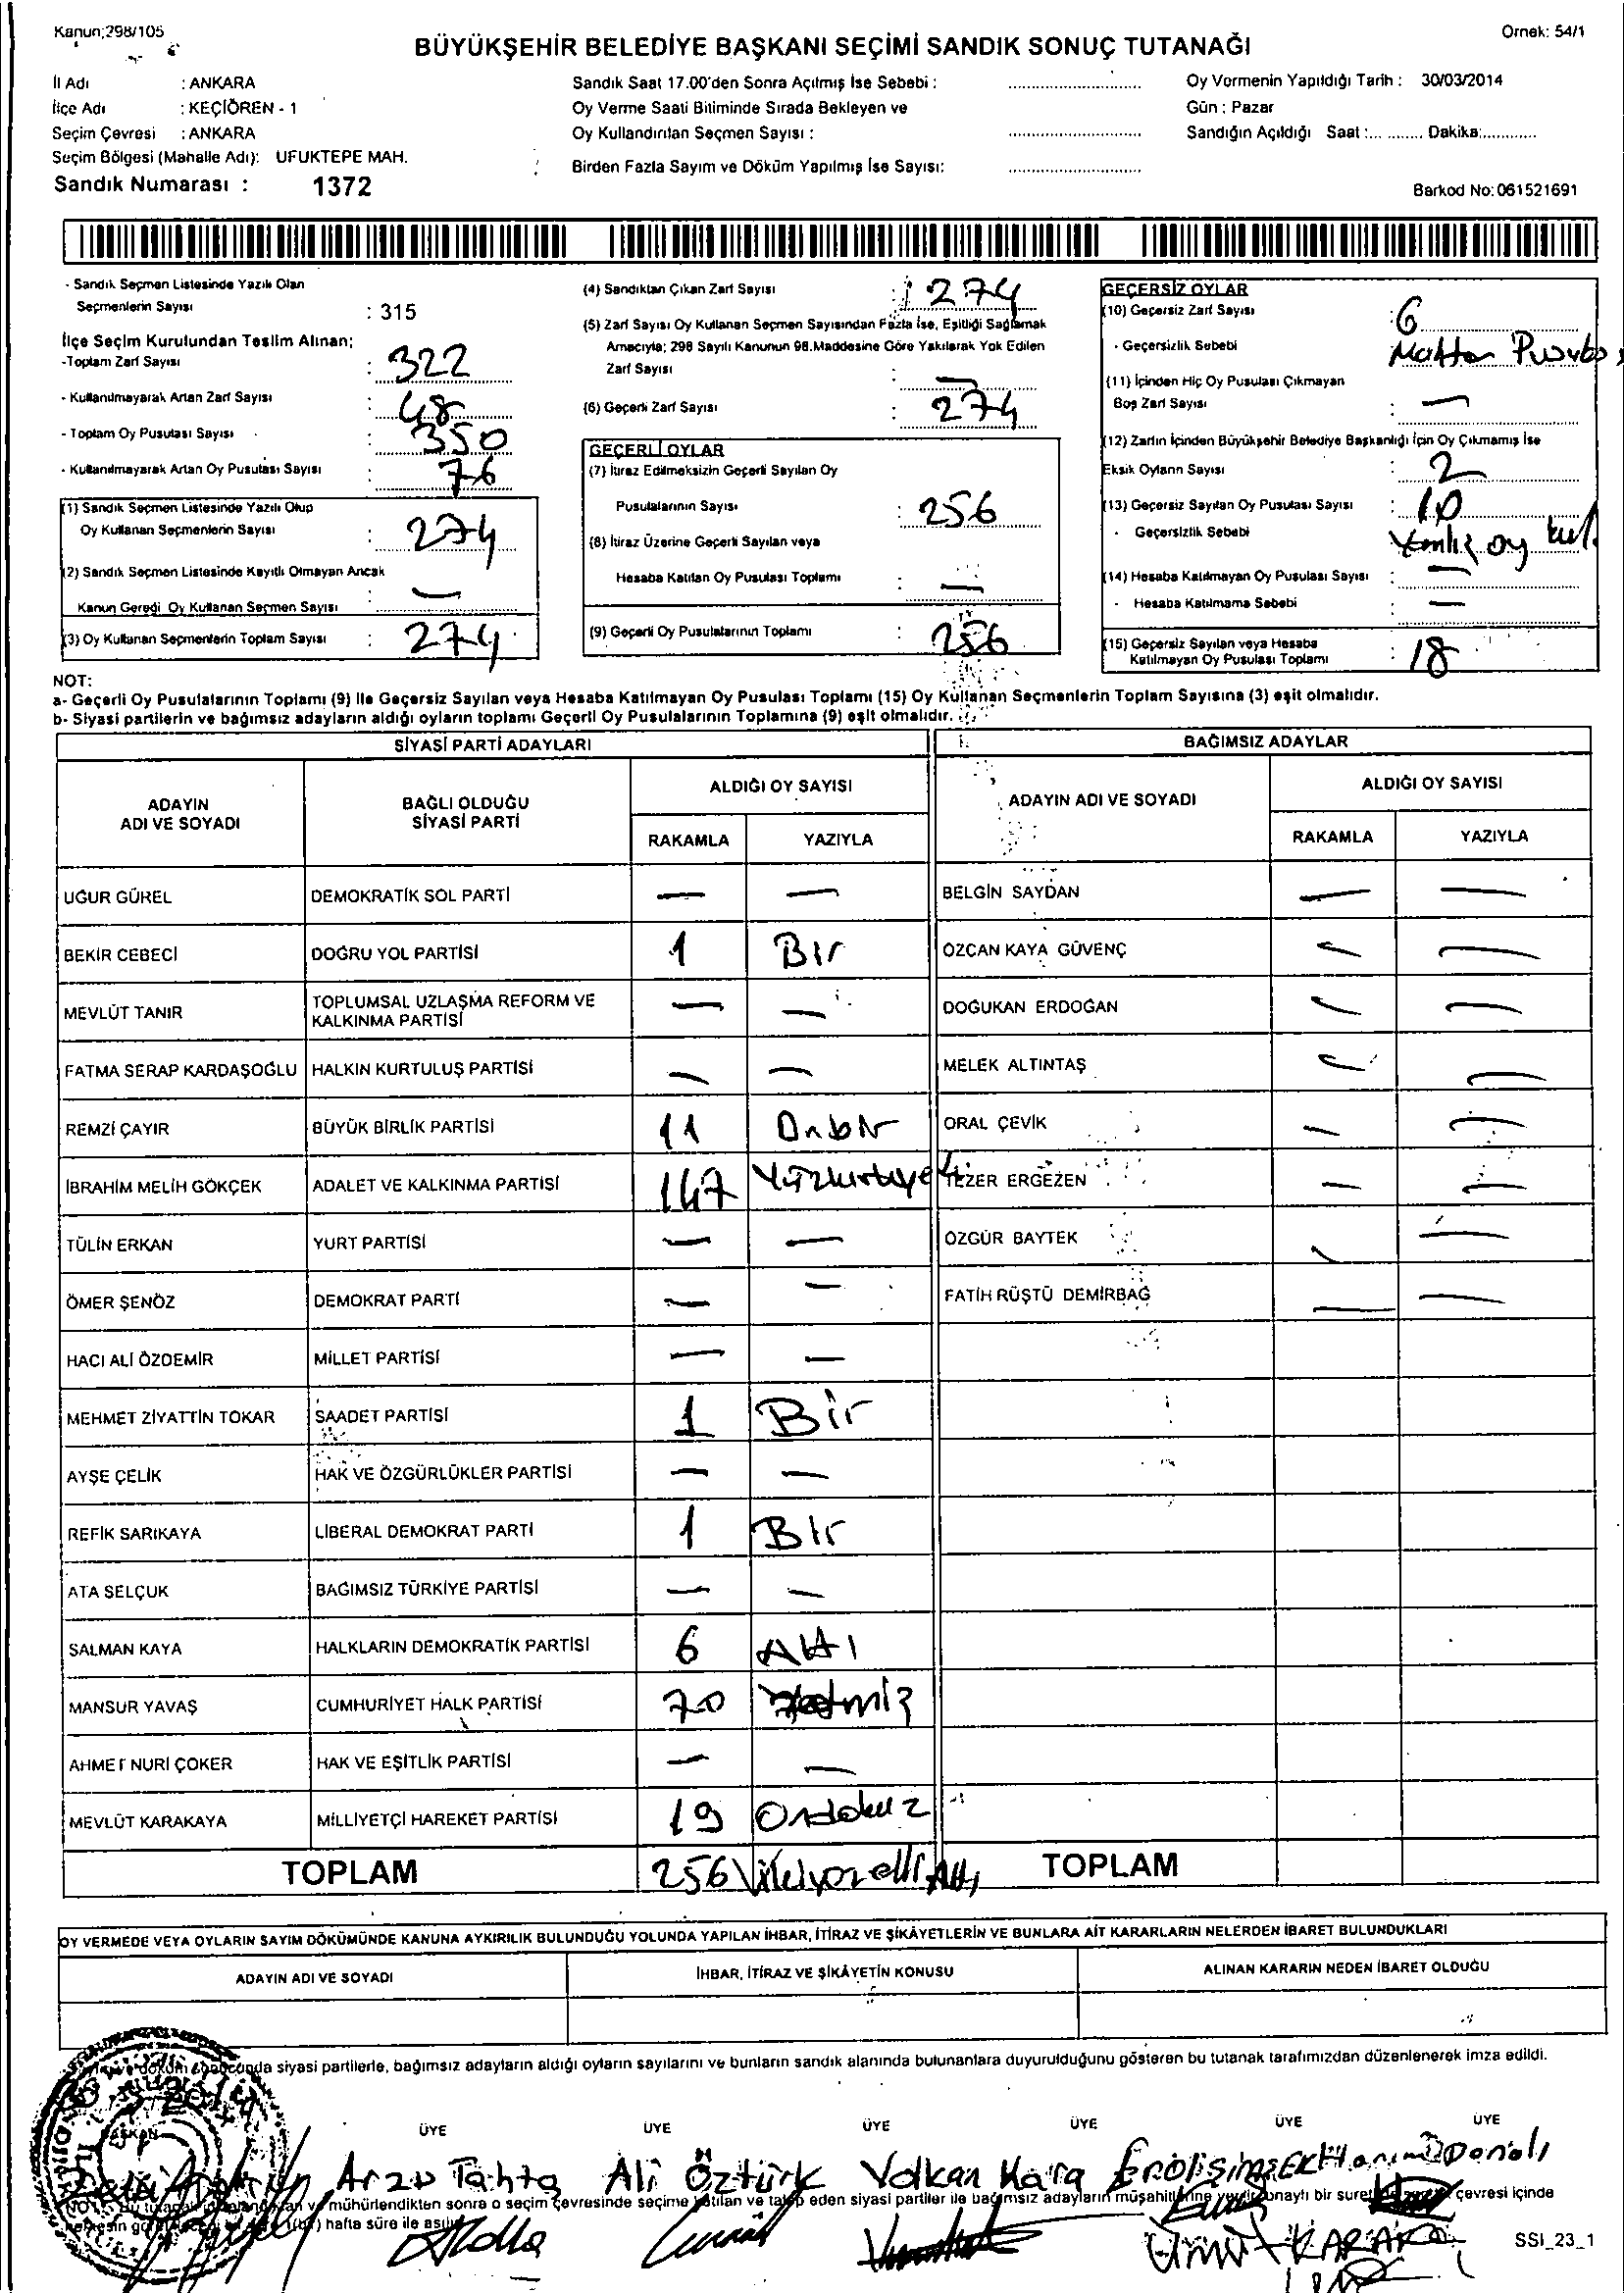 Kanun;298/105
Örnek: 54/1
BÜYÜKŞEHİR BELEDİYE BAŞKANI SEÇİMİ SANDIK SONUÇ TUTANAĞI
İl Adı : ANKARA
İlçe Adı : KEÇİÖREN - 1
Seçim Çevresi : ANKARA
Seçim Bölgesi (Mahalle Adı): UFUKTEPE MAH.
Sandık Numarası : 1372
Sandık Saat 17.00'den Sonra Açılmış İse Sebebi :
Oy Verme Saati Bitiminde Sırada Bekleyen ve
Oy Kullandırılan Seçmen Sayısı :
Birden Fazla Sayım ve Döküm Yapılmış İse Sayısı:
Oy Vermenin Yapıldığı Tarih : 30/03/2014
Gün : Pazar
Sandığın Açıldığı Saat :............ Dakika:............
Barkod No:061521691
- Sandık Seçmen Listesinde Yazılı Olan
Seçmenlerin Sayısı : 315
İlçe Seçim Kurulundan Teslim Alınan;
-Toplam Zarf Sayısı : 322
- Kullanılmayarak Artan Zarf Sayısı : 48
- Toplam Oy Pusulası Sayısı : 350
- Kullanılmayarak Artan Oy Pusulası Sayısı : 76
(1) Sandık Seçmen Listesinde Yazılı Olup
Oy Kullanan Seçmenlerin Sayısı : 274
(2) Sandık Seçmen Listesinde Kayıtlı Olmayan Ancak
Kanun Gereği Oy Kullanan Seçmen Sayısı : —
(3) Oy Kullanan Seçmenlerin Toplam Sayısı : 274
(4) Sandıktan Çıkan Zarf Sayısı : 274
(5) Zarf Sayısı Oy Kullanan Seçmen Sayısından Fazla İse, Eşitliği Sağlamak
Amacıyla; 298 Sayılı Kanunun 98.Maddesine Göre Yakılarak Yok Edilen
Zarf Sayısı : —
(6) Geçerli Zarf Sayısı : 274
GEÇERLİ OYLAR
(7) İtiraz Edilmeksizin Geçerli Sayılan Oy
Pusulalarının Sayısı : 256
(8) İtiraz Üzerine Geçerli Sayılan veya
Hesaba Katılan Oy Pusulası Toplamı : —
(9) Geçerli Oy Pusulalarının Toplamı : 256
GEÇERSİZ OYLAR
(10) Geçersiz Zarf Sayısı : 6
- Geçersizlik Sebebi Muhtar Pusulası
(11) İçinden Hiç Oy Pusulası Çıkmayan
Boş Zarf Sayısı : —
(12) Zarfın İçinden Büyükşehir Belediye Başkanlığı İçin Oy Çıkmamış İse
Eksik Oyların Sayısı : 2
(13) Geçersiz Sayılan Oy Pusulası Sayısı : 10
- Geçersizlik Sebebi Yanlış oy kul.
(14) Hesaba Katılmayan Oy Pusulası Sayısı : —
- Hesaba Katılmama Sebebi : —
(15) Geçersiz Sayılan veya Hesaba
Katılmayan Oy Pusulası Toplamı : 18
NOT:
a- Geçerli Oy Pusulalarının Toplamı (9) İle Geçersiz Sayılan veya Hesaba Katılmayan Oy Pusulası Toplamı (15) Oy Kullanan Seçmenlerin Toplam Sayısına (3) eşit olmalıdır.
b- Siyasi partilerin ve bağımsız adayların aldığı oyların toplamı Geçerli Oy Pusulalarının Toplamına (9) eşit olmalıdır.
SİYASİ PARTİ ADAYLARI
BAĞIMSIZ ADAYLAR
ADAYIN ADI VE SOYADI
BAĞLI OLDUĞU SİYASİ PARTİ
ALDIĞI OY SAYISI
RAKAMLA YAZIYLA
ADAYIN ADI VE SOYADI
ALDIĞI OY SAYISI
RAKAMLA YAZIYLA
UĞUR GÜREL DEMOKRATİK SOL PARTİ — — BELGİN SAYDAN — —
BEKİR CEBECİ DOĞRU YOL PARTİSİ 1 Bir ÖZCAN KAYA GÜVENÇ — —
MEVLÜT TANIR TOPLUMSAL UZLAŞMA REFORM VE KALKINMA PARTİSİ — — DOĞUKAN ERDOĞAN — —
FATMA SERAP KARDAŞOĞLU HALKIN KURTULUŞ PARTİSİ — — MELEK ALTINTAŞ — —
REMZİ ÇAYIR BÜYÜK BİRLİK PARTİSİ 11 Onbir ORAL ÇEVİK — —
İBRAHİM MELİH GÖKÇEK ADALET VE KALKINMA PARTİSİ 147 Yüzkırkyedi TEZER ERGEZEN — —
TÜLİN ERKAN YURT PARTİSİ — — ÖZGÜR BAYTEK — —
ÖMER ŞENÖZ DEMOKRAT PARTİ — — FATİH RÜŞTÜ DEMİRBAĞ — —
HACI ALİ ÖZDEMİR MİLLET PARTİSİ — —
MEHMET ZİYATTİN TOKAR SAADET PARTİSİ 1 Bir
AYŞE ÇELİK HAK VE ÖZGÜRLÜKLER PARTİSİ — —
REFİK SARIKAYA LİBERAL DEMOKRAT PARTİ 1 Bir
ATA SELÇUK BAĞIMSIZ TÜRKİYE PARTİSİ — —
SALMAN KAYA HALKLARIN DEMOKRATİK PARTİSİ 6 Altı
MANSUR YAVAŞ CUMHURİYET HALK PARTİSİ 70 Yetmiş
AHMET NURİ ÇOKER HAK VE EŞİTLİK PARTİSİ — —
MEVLÜT KARAKAYA MİLLİYETÇİ HAREKET PARTİSİ 19 Ondokuz
TOPLAM 256 İkiyüzelli Altı TOPLAM
OY VERMEDE VEYA OYLARIN SAYIM DÖKÜMÜNDE KANUNA AYKIRILIK BULUNDUĞU YOLUNDA YAPILAN İHBAR, İTİRAZ VE ŞİKÂYETLERİN VE BUNLARA AİT KARARLARIN NELERDEN İBARET BULUNDUKLARI
ADAYIN ADI VE SOYADI İHBAR, İTİRAZ VE ŞİKÂYETİN KONUSU ALINAN KARARIN NEDEN İBARET OLDUĞU
siyasi partilerle, bağımsız adayların aldığı oyların sayılarını ve bunların sandık alanında bulunanlara duyurulduğunu gösteren bu tutanak tarafımızdan düzenlenerek imza edildi.
BAŞKAN ÜYE ÜYE ÜYE ÜYE ÜYE ÜYE
Arzu Tahta Ali Öztürk Volkan Kara Erol Şimşek
mühürlendikten sonra o seçim çevresinde seçime katılan ve talep eden siyasi partiler ile bağımsız adayların müşahitlerine onaylı bir suret çevresi içinde
hafta süre ile asılır
ÜMİT KARACA
SSI_23_1